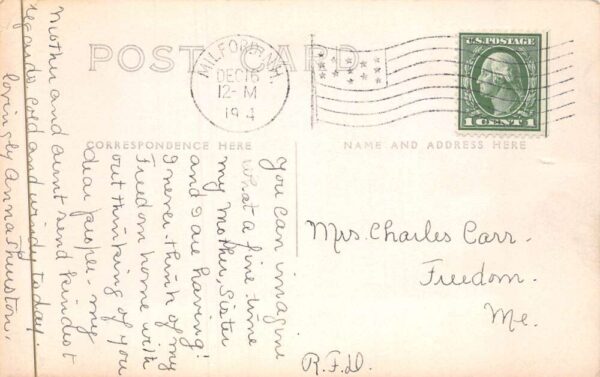 POST CARD
MILFORD, N.H.
DEC 16
12-M
U.S. POSTAGE
1 CENT 1
CORRESPONDENCE HERE
NAME AND ADDRESS HERE
You can imagine
what a fine time
my Mother, Sister
and I are having!
I never think of my
Freedom home with
out thinking of you
dear people - my
Mother and aunt send kindest
regards. Cold and windy today.
lovingly Anna Thurston.
Mrs. Charles Carr.
Freedom.
Me.
R.F.D.